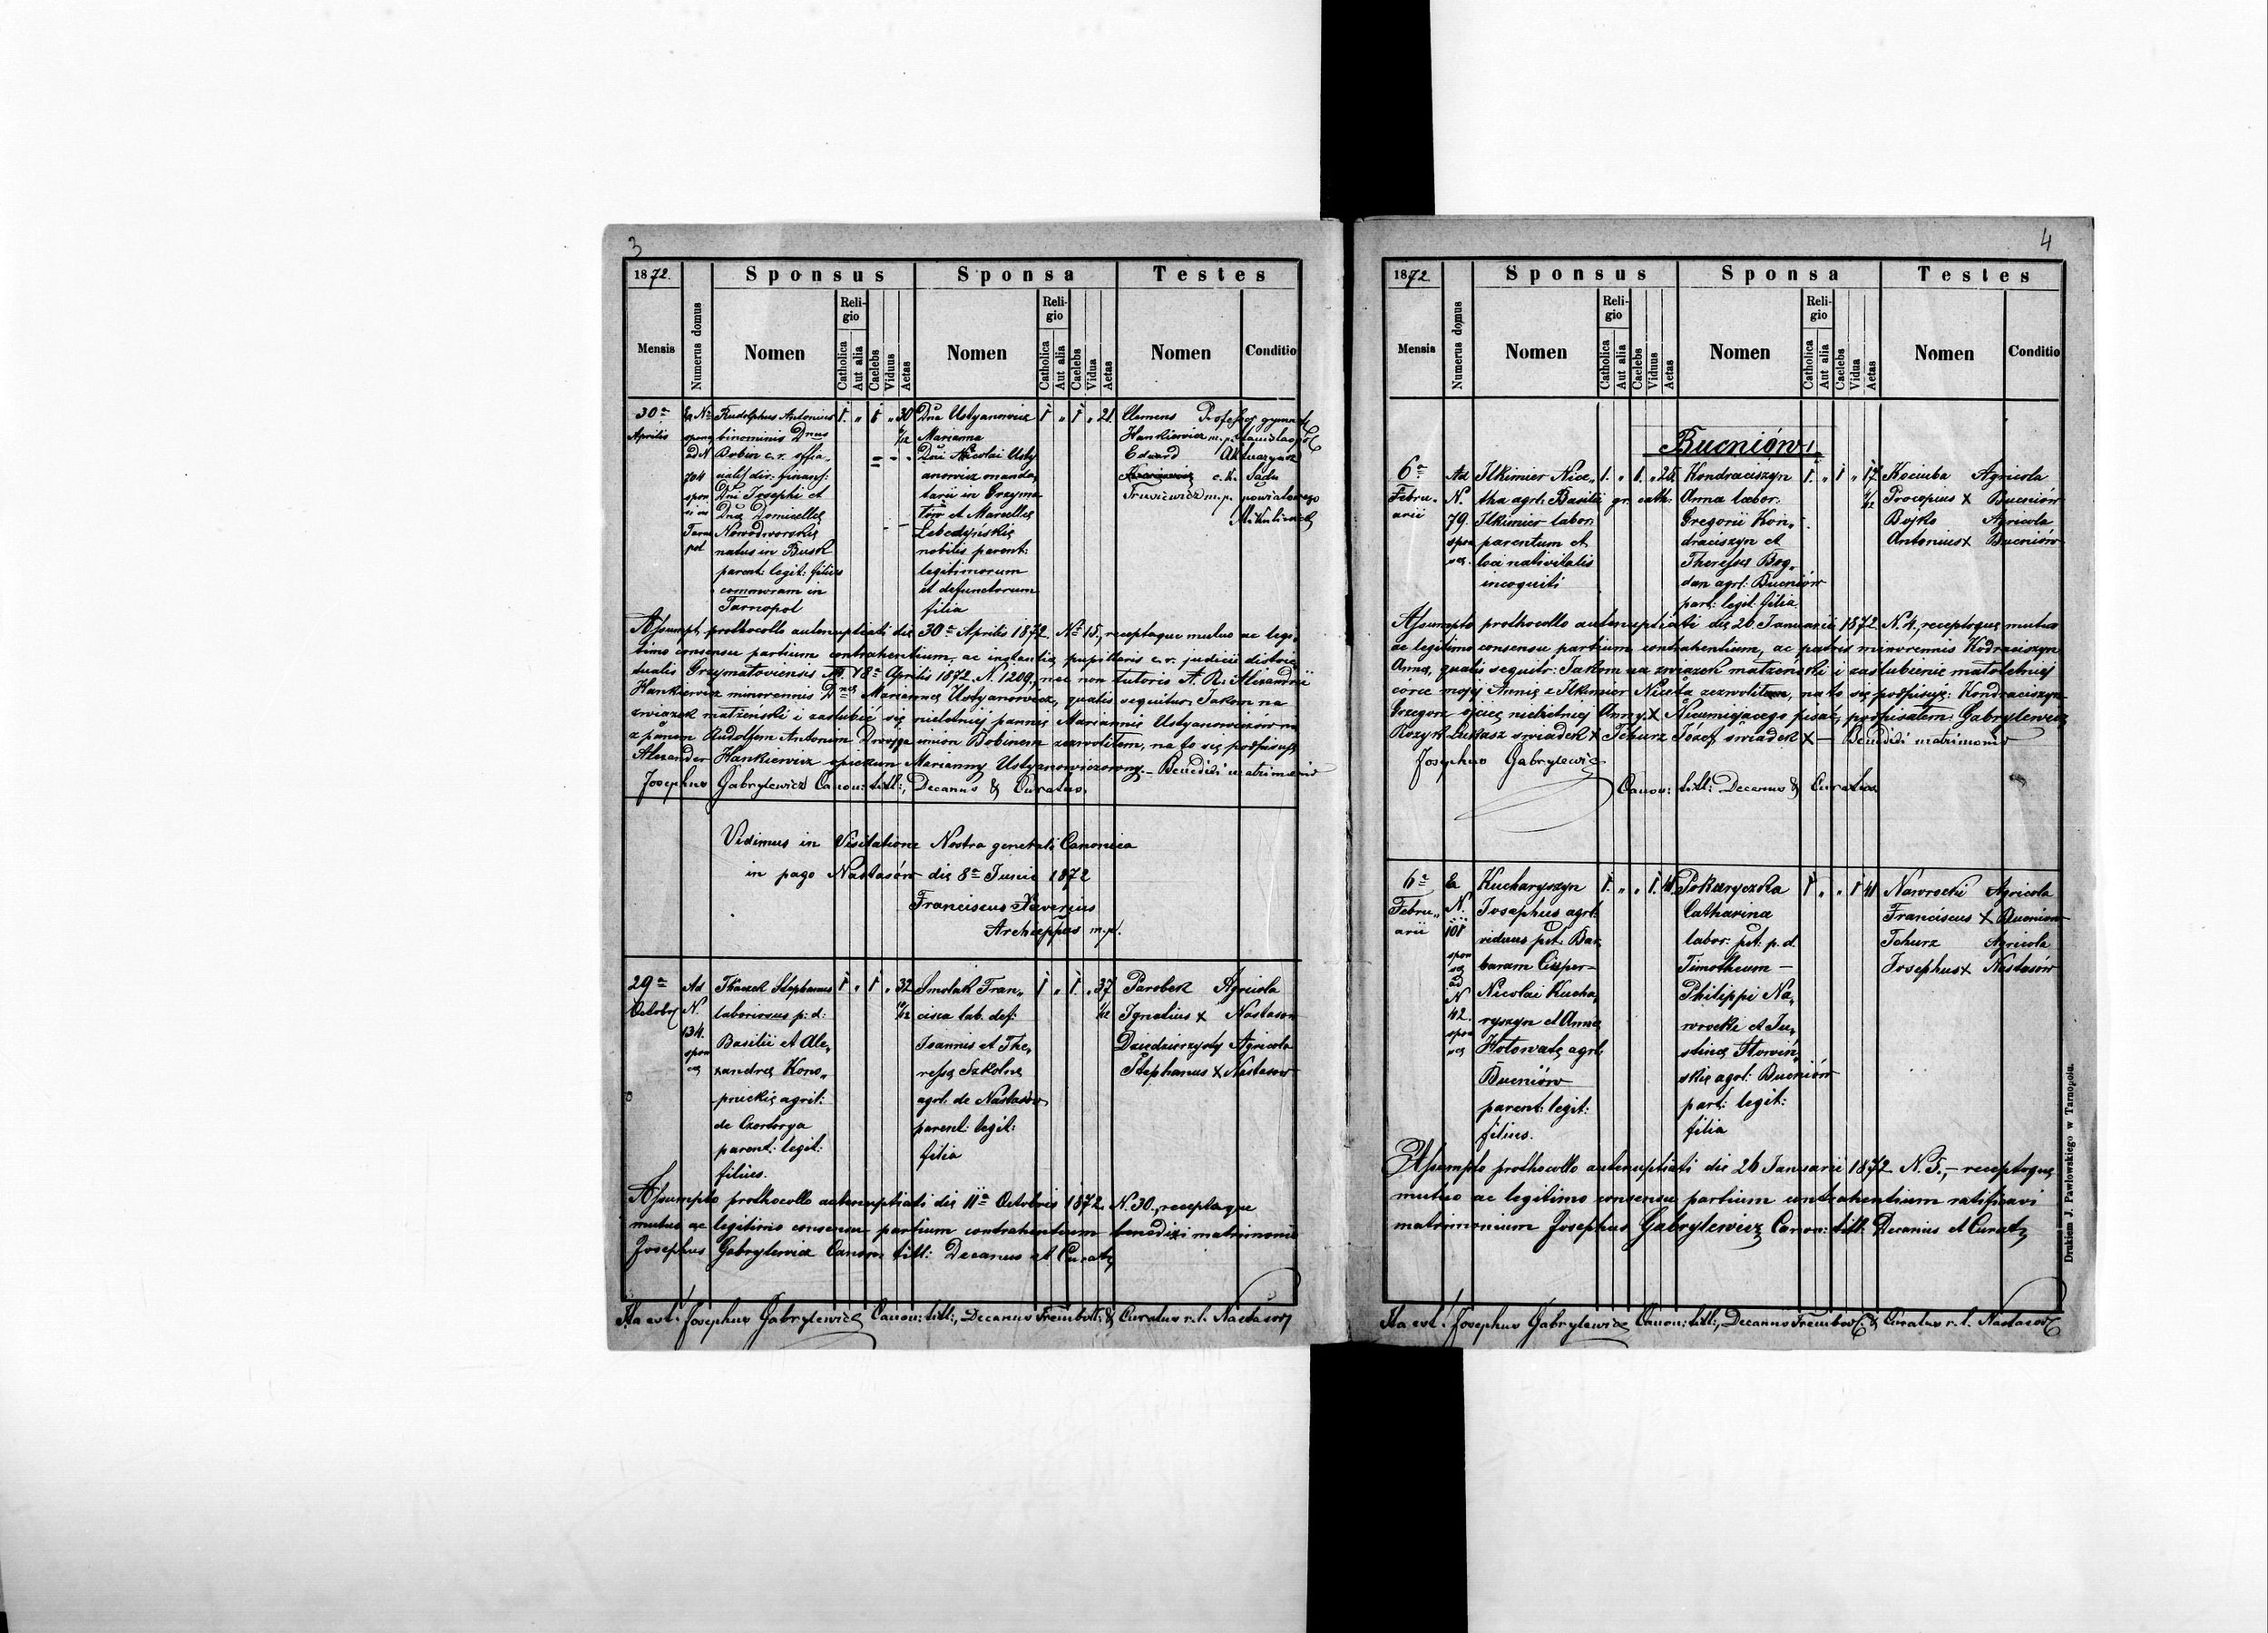 3
1872.
Sponsus Sponsa Testes
Mensis
Numerus domus
Nomen
Religio
Catholica
Aut alia
Caelebs
Viduus
Aetas
Nomen
Religio
Catholica
Aut alia
Caelebs
Vidua
Aetas
Nomen
Conditio
30a Aprilis
Ex No
spons
ad N
704
spon
si in
Tarno
pol
Rudolphus Antonius
binominis Dnus
Bobin c. r. offia
Dni Josephi et
Dnae Domicellae
Nowodworskie
natus in Busk
parent: legit: filius
commoram in
Tarnopol
1. „ 1 „ 30
Dna Ustyanowicz
Marianna
Dni Nicolai Usty
anowicz manda
tarii in Grzyma
łów et Marcellae
Lebedyńskie
nobilis parent:
legitimorum
et defunctorum
filia
1 „ 1 „ 21
Clemens Professor gymn
Hankiewicz m. p.
Eduard
c. k. Sądu
m. p. powiatowego
Assumpt. prothocollo antenuptiati die 30a Aprilis 1872 No 15., receptoque mutuo ac legi
timo consensu partium contrahentium, ac instantiae pupillaris c. r. judicii distric
tualis Grzymałoviensis 18a Aprilis 1872. N. 1209., nec non tutoris A. R. Alexandri
Hankiewicz minorennis Dnae Mariannae Ustyanowicz, qualis sequitur: Jakom na
związek małżeński i zaślubić się nieletniej pannie Mariannie Ustyanowiczównie
z panem Rudolfem Antonim Dwojga imion Bobinem zezwolitem, na to się podpisuję
Alexander Hankiewicz opiekun Marianny Ustyanowiczowny. – Benedixi matrimonio
Josephus Gabrylewicz Canon: titl:, Decanus & Curatus.
Vidimus in Visitatione Nostra generali Canonica
in pago Nastasów die 8a Junii 1872
Franciscus Xaverius
Archieppus m. p.
29a Octobr
Ad
N.
134.
spon
sae
Tkaczek Stephanus
laboriosus p: d:
Basilii et Ale„
xandrae Kono„
pnickie agril:
de Czortorya
parent: legit:
filius.
1 „ 1 „ 32 10/12
Smolak Fran„
cisca lab. def:
Joannis et The„
ressae Szkolne
agrl. de Nastasów
parent: legit:
filia
1 „ 1. „ 37 1/12
Parobek Agricola
Ignatius x Nastasow
Dziedzierzysty Agricola
Stephanus x Nastasow
Assumpto prothocollo antenuptiati die 11a Octobris 1872. N. 30., receptoque
mutuo ac legitimo consensu partium contrahentium benedixi matrimonio
Josephus Gabrylewicz Canon: titl: Decanus et Curat
Ita est. Josephus Gabrylewicz Canon: titl:, Decanus Trembowl: & Curatus r. l. Nastasow
4
1872
Sponsus Sponsa Testes
Mensis
Numerus domus
Nomen
Religio
Catholica
Aut alia
Caelebs
Viduus
Aetas
Nomen
Religio
Catholica
Aut alia
Caelebs
Vidua
Aetas
Nomen
Conditio
Bucniów
6a Febru„ arii
Ad
N.
79.
spon
sae.
Ilkimier Nice„
tha agrl: Basilii
Ilkimier labor:
parentum et
loci nativitatis
incogniti
1. „ 1. „ 26
gr. cath.
Kondraciszyn
Anna labor:
Gregorii Kon„
draciszyn et
Theressae Bog„
dan agrl: Bucniów
part: legit: filia.
1. „ 1 „ 17
Kociuba Agricola
Procopius x Bucniów
Bojko Agricola
Antonius x Bucniów
Assumpto prothocollo antenuptiati die 26 Januarii 1872 N. 4., receptoque mutuo
ac legitimo consensu partium contrahentium, ac patris minorennis Kodraciszyn
Annae, qualis sequitr: Jakom na związek małżeński i zaślubienie małoletniej
córce mojej Annie z Ilkimier Nicetą zezwolitem, na to się podpisuję: Kondraciszyn
Grzegorz ojciec nieletniej Anny x Nieumiejącego pisać, podpisałem Gabrylewicz
Kozyk Łukasz świadek x Tchurz Józef świadek x – Benedixi matrimonio
Josephus Gabrylewicz
Canon: titl: Decanus & Curatus
6a Febru„ arii
Ex
N.
101
spon
si
ad
N
42.
spon
sae
Kucharyszyn
Josephus agrl:
viduus pst. Bar„
baram Cisper –
Nicolai Kucha„
ryszyn et Annae
Hołowate agrl:
Bucniów
parent: legit:
filius.
1. „ „ 1. 41
Pokaryczka
Catharina
labor: pst: p. d.
Timotheum –
Philippi Na„
wrocki et Ju„
stinae Słowiń„
skie agrl: Bucniów
part: legit:
filia
1 „ „ 1 41
Nawrocki Agricola
Franciscus x Bucniow
Tchurz Agricola
Josephus x Nastasów
Assumpto prothocollo antenuptiati die 26 Januarii 1872 N. 5., – receptoque
mutuo ac legitimo consensu partium contrahentium ratificavi
matrimonium Josephus Gabrylewicz Canon: titl: Decanus et Curat
Ita est. Josephus Gabrylewicz Canon: titl:, Decanus Trembowl: & Curatus r. l. Nastasow
Drukiem J. Pawłowskiego w Tarnopolu.